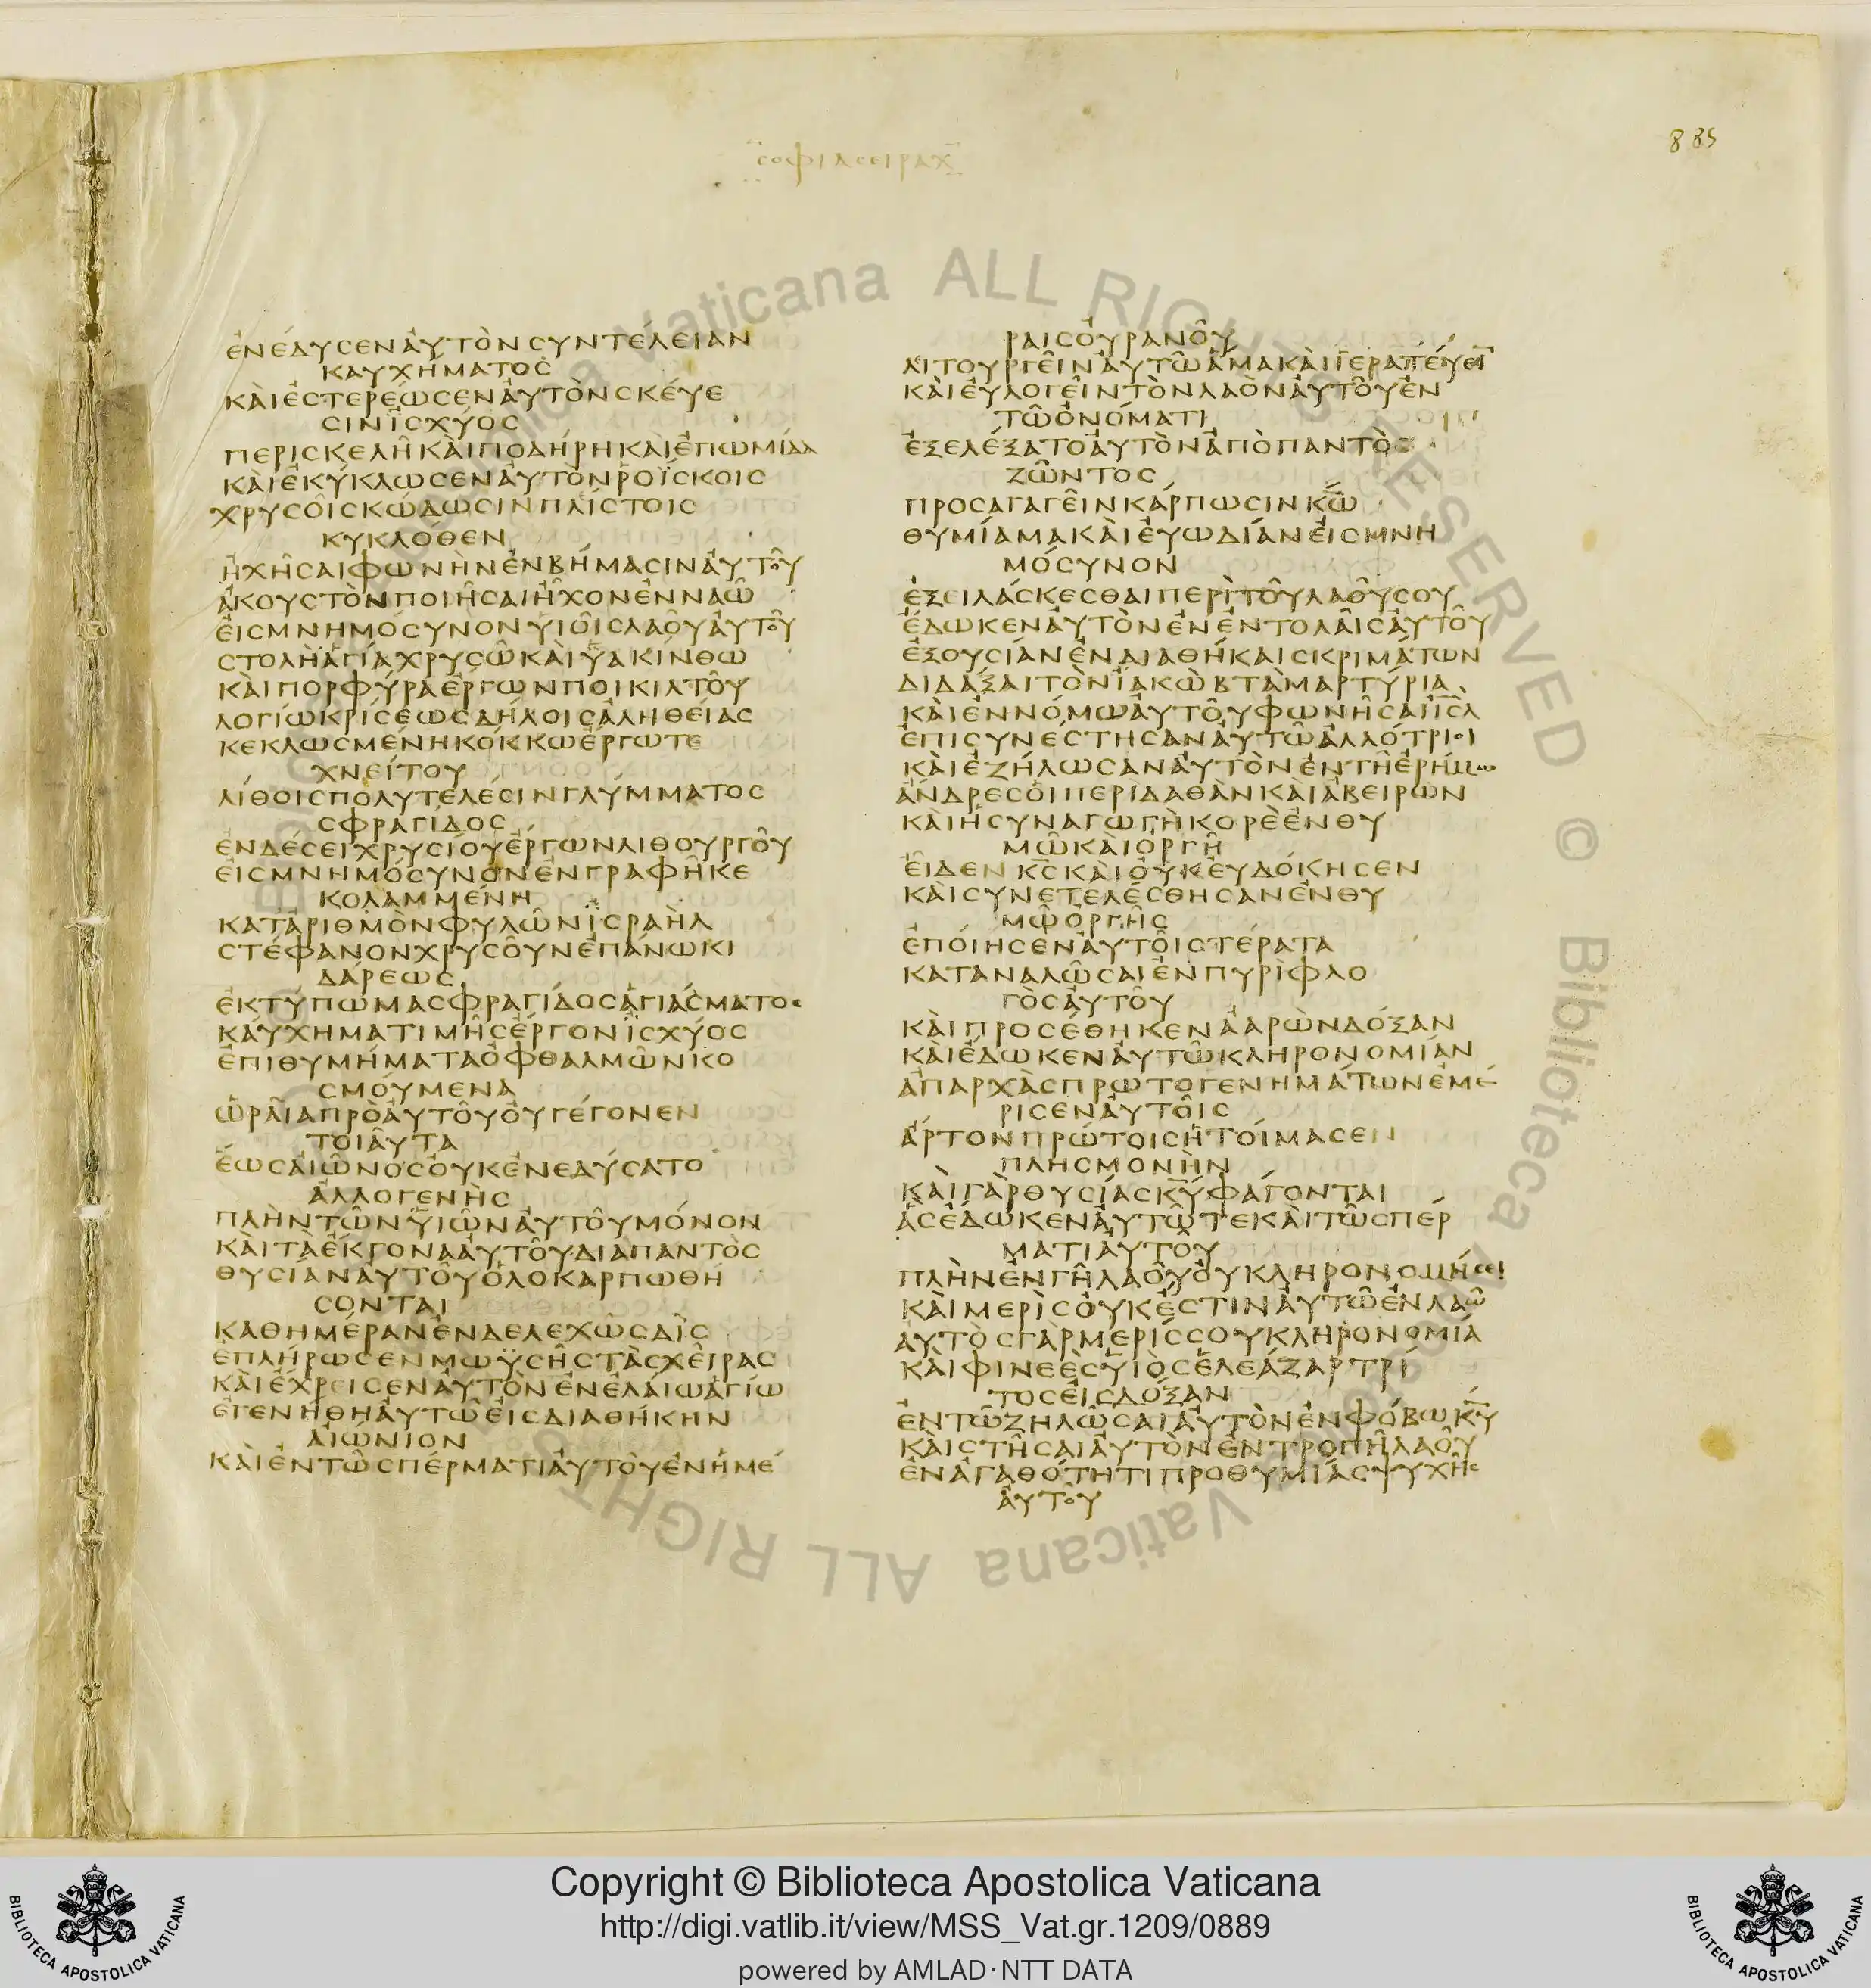 σοφιασειραχ
885
ἐνέδυσεναὐτὸνσυντέλειαν
καυχήματος
καὶἐστερέωσεναὐτὸνσκέυε
σινἰσχύος
περισκελῆκαὶποδήρηκαὶἐπωμίδα
καὶἐκύκλωσεναὐτὸνῥοΐσκοις
χρυσοῖςκώδωσινπλείστοις
κυκλόθεν
ἠχῆσαιφωνὴνἐνβήμασιναὐτοῦ
ἀκουστὸνποιῆσαιἦχονἐνναῶ
εἰςμνημόσυνονυἱοῖςλαοῦαὐτοῦ
στολῆἁγίαχρυσῶκαὶὑακίνθω
καὶπορφύραἔργωνποικιλτοῦ
λογίωκρίσεωςδήλοιςἀληθείας
κεκλωσμένηκόκκωἔργωτε
χνείτου
λίθοιςπολυτελέσινγλύμματος
σφραγίδος
ἐνδέσειχρυσίουἔργωνλιθουργοῦ
εἰςμνημόσυνονἐνγραφῆκε
κολαμμένη
κατἀριθμὸνφυλῶνἰσραὴλ
στέφανονχρυσοῦνἐπάνωκι
δάρεως
ἐκτύπωμασφραγίδοςἁγιάσματος
καυχηματιμῆςἔργονἰσχύος
ἐπιθυμήματαὀφθαλμῶνκο
σμούμενα
ὡραῖαπρὸαὐτοῦοὐγέγονεν
τοιαῦτα
ἕωςαἰῶνοςοὐκἐνεδύσατο
ἀλλογενὴς
πλὴντῶνυἱῶναὐτοῦμόνον
καὶτὰἔκγονααὐτοῦδιαπαντὸς
θυσίαναὐτοῦὁλοκαρπωθή
σονται
καθημέρανἐνδελεχῶςδὶς
ἐπλήρωσενμωϋσῆςτὰςχεῖρας
καὶἔχρεισεναὐτὸνἐνἐλαίωἁγίω
ἐγενήθηαὐτῶεἰςδιαθήκην
αἰώνιον
καὶἐντῶσπέρματιαὐτοῦἐνἡμέ
ραιςοὐρανοῦ
λιτουργεῖναὐτῶἅμακαὶἱερατέυει
καὶεὐλογεῖντὸνλαὸναὐτοῦἐν
τῶὀνόματι
ἐξελέξατοαὐτὸνἀπὸπαντὸς
ζῶντος
προσαγαγεῖνκάρπωσινκω
θυμίαμακαὶεὐωδίανεἰςμνη
μόσυνον
ἐξειλάσκεσθαιπερὶτοῦλαοῦσου
ἔδωκεναὐτὸνἐνἐντολαῖςαὐτοῦ
ἐξουσίανἐνδιαθήκαιςκριμάτων
διδάξαιτὸνἰακὼβτὰμαρτύρια
καὶἐννόμωαὐτοῦφωνῆσαιισλ
ἐπισυνέστησαναὐτῶἀλλότριοι
καὶἐζήλωσαναὐτὸνἐντῆἐρήμω
ἄνδρεςοἱπερίδαθὰνκαὶἀβειρὼν
καὶἡσυναγωγὴκορὲἐνθυ
μῶκαὶὀργῆ
εἶδενκςκαὶοὐκεὐδόκησεν
καὶσυνετελέσθησανἐνθυ
μῶὀργῆς
ἐποίησεναὐτοῖςτέρατα
καταναλῶσαιἐνπυρὶφλο
γὸςαὐτοῦ
καὶπροσέθηκενἀαρὼνδόξαν
καὶἔδωκεναὐτῶκληρονομίαν
ἀπαρχὰςπρωτογενημάτωνἐμέ
ρισεναὐτοῖς
ἄρτονπρώτοιςἡτοίμασεν
πλησμονὴν
καὶγὰρθυσίαςκυφάγονται
ἃςἔδωκεναὐτῶτεκαὶτῶσπέρ
ματιαὐτοῦ
πλὴνἐνγῆλαοῦοὐκληρονομήσει
καὶμερὶςοὐκἔστιναὐτῶἐνλαῶ
αὐτὸςγὰρμερίςσουκληρονομιά
καὶφινεὲςυἱὸςἐλεάζαρτρί
τοςεἰςδόξαν
ἐντῶζηλῶσαιαὐτὸνἐνφόβωκυ
καὶστῆσαιαὐτὸνἐντροπῆλαοῦ
ἐνἀγαθότητιπροθυμίαςψυχῆς
αὐτοῦ
Vaticana ALL RIGHTS RESERVED © Biblioteca Vaticana ALL RIGHTS
Copyright © Biblioteca Apostolica Vaticana
http://digi.vatlib.it/view/MSS_Vat.gr.1209/0889
powered by AMLAD·NTT DATA
BIBLIOTECA APOSTOLICA VATICANA
BIBLIOTECA APOSTOLICA VATICANA